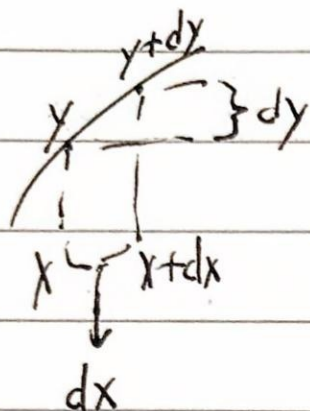 y+dy
y
dy
x
x+dx
dx